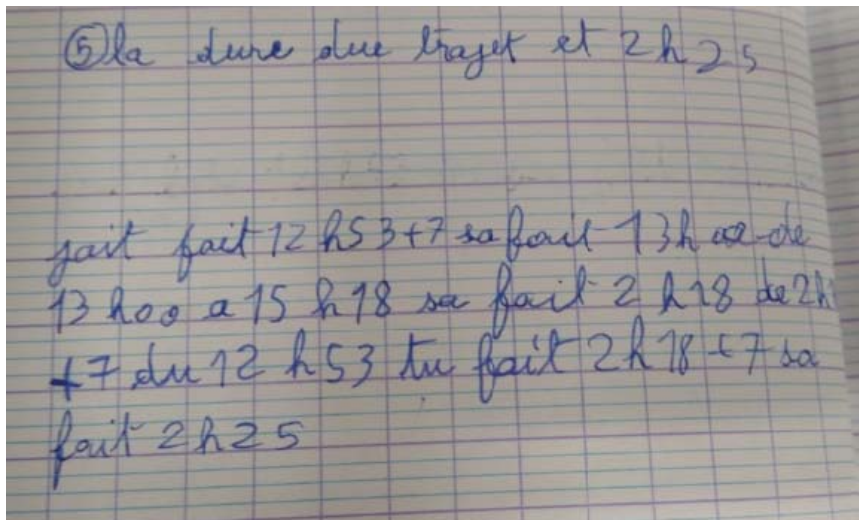 ⑤ la dure due trajet et 2h25
jait fait 12h53+7 sa fait 13h de
13h00 a 15h18 sa fait 2h18 de 2h
+7 du 12h53 tu fait 2h18+7 sa
fait 2h25